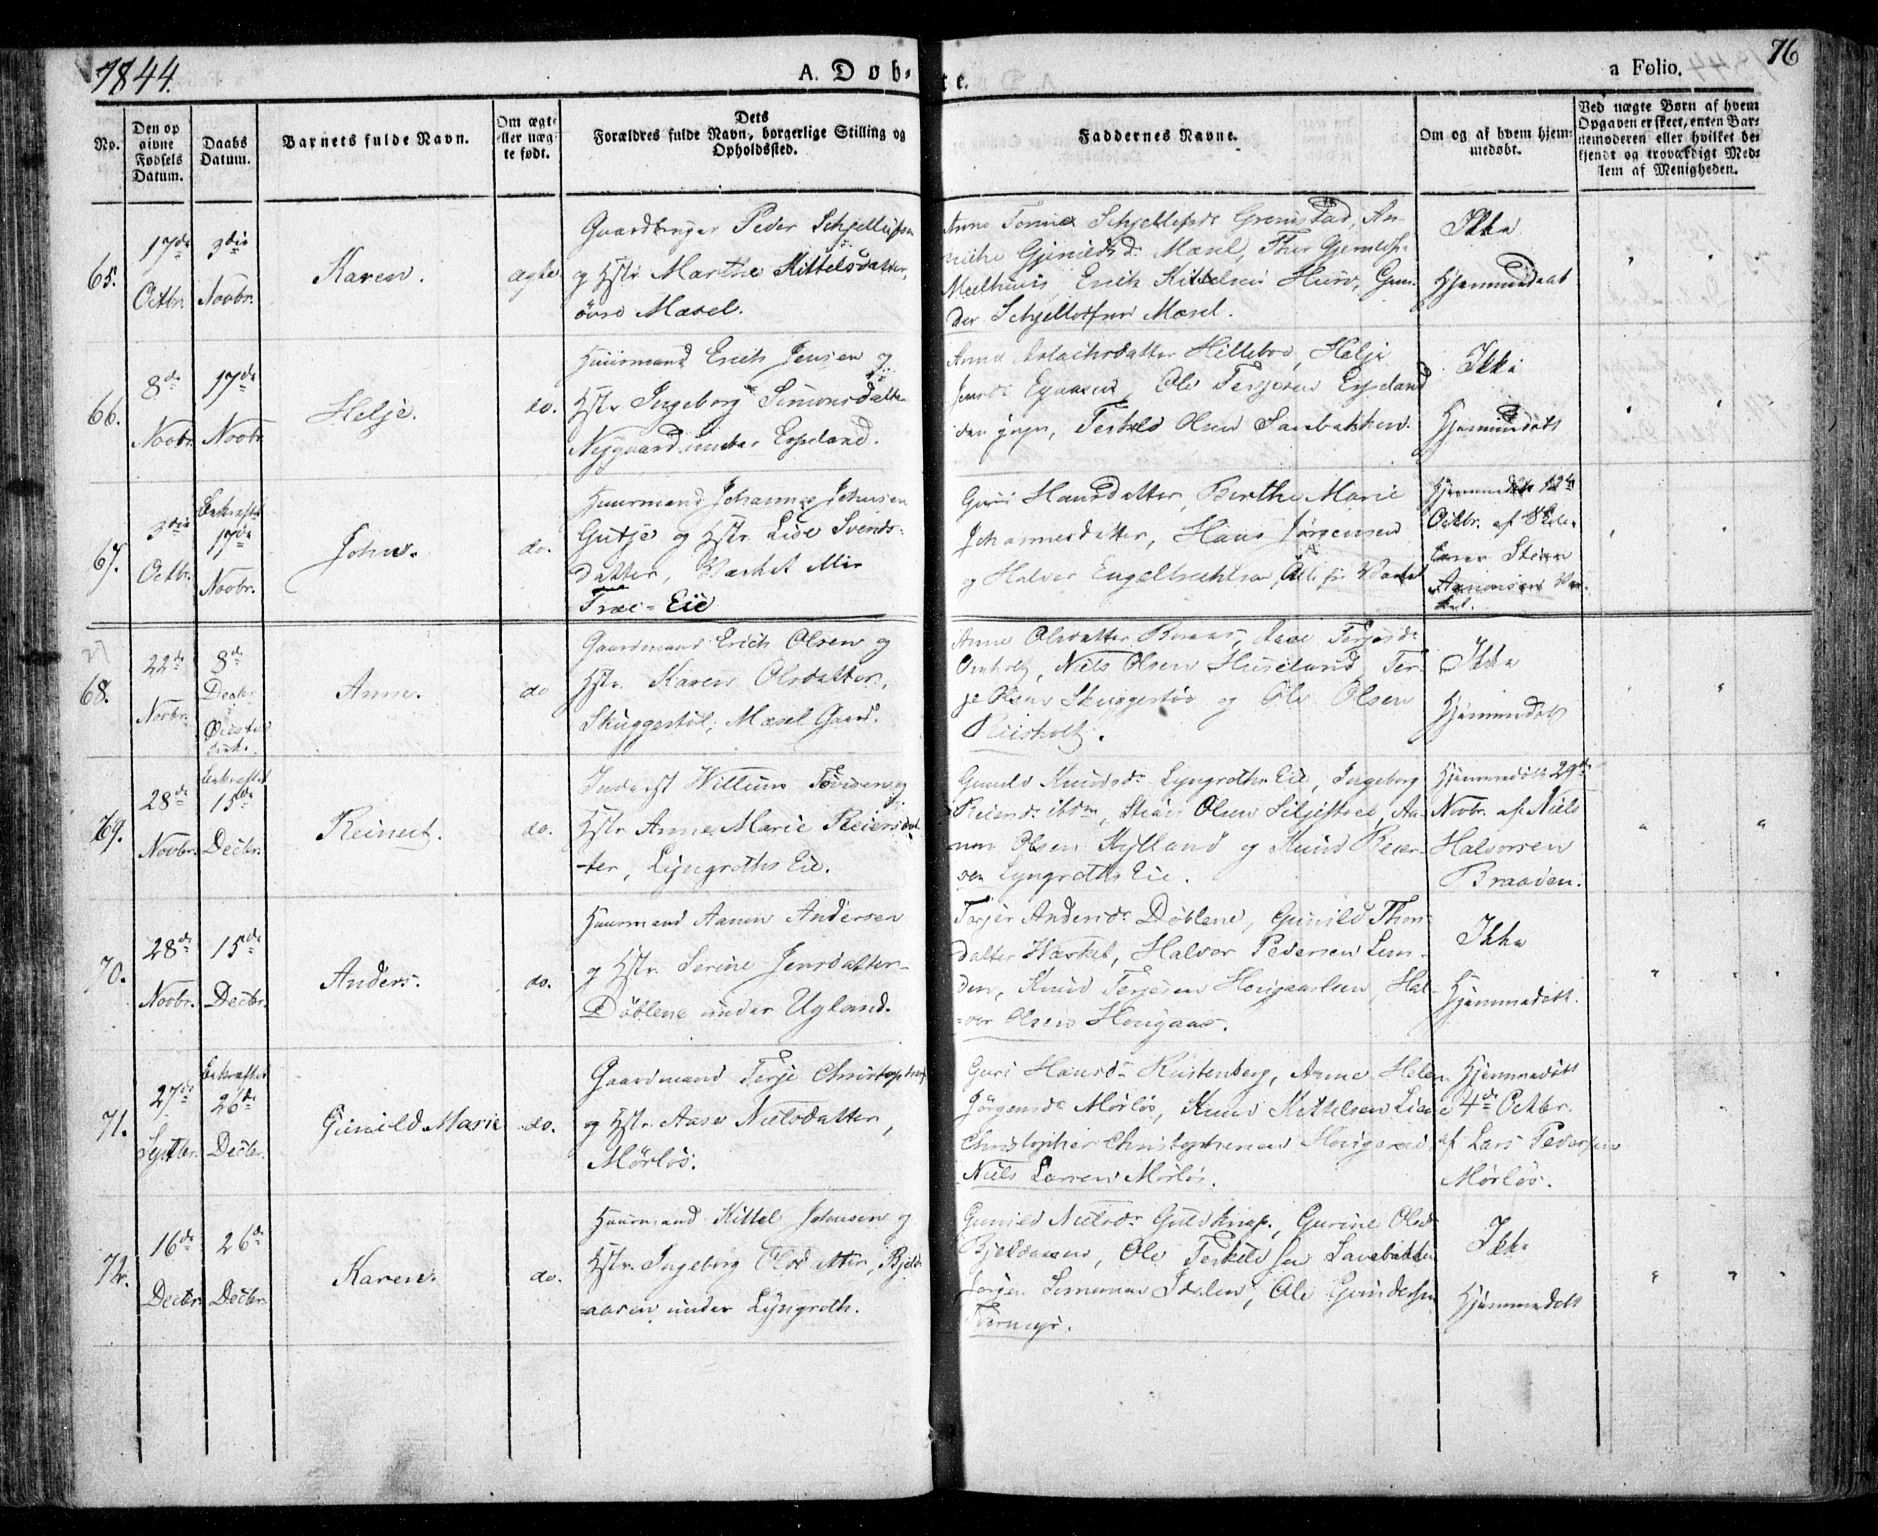 1844.
A. Døb-
te.
a Folio.
76
No.
Den op
givne
Fødsels
Datum.
Daabs
Datum.
Barnets fulde Navn.
Om ægte
eller uæg
te født.
Dets
Forældres fulde Navn, borgerlige Stilling og
Opholdssted.
Faddernes Navne.
Om og af hvem hjem-
medøbt.
Ved uægte Børn af hvem
Opgaven er skeet, enten Bar-
nemoderen eller hvilket be-
kjendt og troværdigt Med-
lem af Menigheden.
65.
17de
Octbr.
3die
Novbr.
Karen.
ægte
Gaardbruger Peder Schjellufsen
og Hstr Marthe Kittelsdatter,
övre Mæsel.
Anne Schjellefsdr Gromstad, An-
Mæsel, Thor
Erich Kittelsen Huus, Gun-
der Schjellofsen Mæsel.
Ikke
Hjemmedøbt
66.
8de
Novbr.
17de
Novbr.
Helje.
do.
Huusmand Erich Jensen og
Hstr Ingeborg Simonsdatter
Nygaard under Espeland.
Anne Aslachsdatter Hillebo, Helje
Jensdr Egaasen, Ole Terjesen Espeland
den yngre, Terkeld Olsen Saubakken.
Ikke
Hjemmedøbt
67.
3die
Octbr.
Bekræftet
17de
Novbr.
John.
do.
Huusmand Johannes Johnsen
Gutje og Hstr. Lise Svends-
datter, Værket Mis
Træe-Eie
Guri Hansdatter, Berthe Marie
Johannesdatter, Hans Jørgensen
og Halvor Engelbrektsen Alle fra Værket
Hjemmedøbt 12te
Octbr. af Skole-
lærer Steen
Aanonsen Vær-
ket.
68.
22de
Novbr.
8de
Decbr.
Anne.
do
Gaardmand Erich Olsen og
Hstr. Karen Olsdatter,
Skuggestøl, Mæsel Gaard.
Anne Olsdatter Terjesdr
Omholt, Niels Olsen Huseland, Ter-
je Olsen Skuggestøl og Ole Olsen
Riisholt.
Ikke
Hjemmedøbt
69.
28de
Novbr.
Bekræftet
15de
Decbr.
Reinert.
do.
Inderst Willum Tovsen og
Hstr. Anne Marie Reiersdat-
ter, Lyngroths Eie.
Gunild Knudsdr Lyngroths Eie, Ingeborg
Reiersdr ibdm, Olsen Siljestøl, Aa-
non Olsen Kylland og Knud Reier-
sen Lyngroths Eie.
Hjemmedøbt 29de
Novbr. af Niels
Halvorsen
Braaden.
70.
28de
Novbr.
15de
Decbr.
Anders.
do.
Huusmand Aanon Andersen
og Hstr. Serine Jensdatter-
Döblene under Ugland.
Terjer Andersdr Döblene, Gunild Thors-
datter Værket, Halvor Pedersen Lun-
den, Knud Terjesen Hougaarlsen, Hal-
vor Olsen Hougaas.
Ikke
Hjemmedøbt.
71.
27de
Septbr.
Bekræftet
26de
Decbr.
Gunild Marie
do.
Gaardmand Terje Christophersen
og Hstr. Aase Nielsdatter,
Mörlös.
Guri Hansdr Rustenberg, Anne Helen
Jörgensdr Mörlös, Knud Kittelsen Lie
Christopher Christophersen Hougerød,
Niels Larsen Mörlös.
Hjemmedøbt
4de Octbr.
af Lars Pedersen
Mörlös.
72.
16de
Decbr.
26de
Decbr.
Karen.
do.
Huusmand Kittel Johnsen og
Hstr. Ingeborg Olsdatter, Bjeld-
aasen under Lyngroth.
Gunild Nielsdr Guldknap, Gurine Olsdr
Bjeldaasen, Ole Terkeldsen Saubakken
Jörgen Simonsen Dalen, Ole Gundersen
Tvermyr.
Ikke
Hjemmedøbt